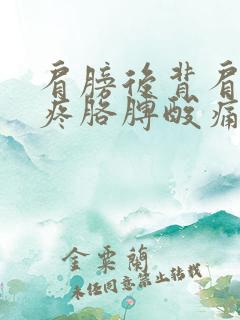 肩膀後背肩
疼胳膊酸痛
金粟蘭
未经同意禁止转载